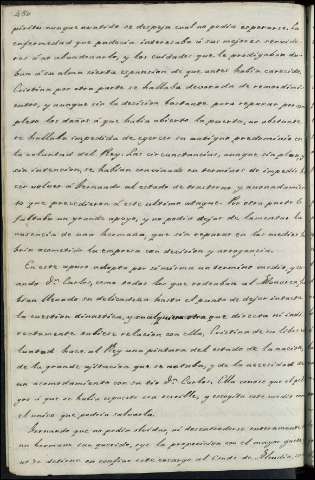 450
píritus aunque no todo se despeja cual no podía esperarse. La
enfermedad que padecía interesaba á sus mejores servido-
res á no abandonarlo, y los cuidados que le prodigaban da-
ban á su alma cierta espansion de que antes habia carecido.
Cristina por otra parte se hallaba devorada de remordimi-
entos, y aunque sin la decision bastante para reparar por com-
pleto los daños á que habia abierto la puerta, no obstante
se hallaba impedida de ejercer su antiguo predominio en
la voluntad del Rey. Las circunstancias, aunque sin plan, y
sin intencion, se habian convinado en terminos de impedir ha-
cer volver á Fernando al estado de trastorno y anonadamien-
to que precedieron á este ultimo ataque. Por otra parte le
faltaba un grande apoyo, y no podia dejar de lamentar la
ausencia de una hermana, que sin reparar en los medios ha-
bria acometido la empresa con decision y arrogancia.
En este apuro adopta por sí misma un termino medio, y cu-
ando Dn. Carlos, como todos los que rodeaban al Monarca ha-
bian llevado su delicadeza hasta el punto de dejar intacta
la cuestion dinastica, y cualquiera otra que directa ni indi-
rectamente tubiese relacion con ella, Cristina de su libre vo-
luntad hace al Rey una pintura del estado de la nacion,
de la grande agitacion que se notaba, y de la necesidad de
un acomodamiento con su tio Dn. Carlos. Ella conoce que el peli-
gro á que se habia espuesto era terrible, y escogita este medio como
el unico que podria salvarla.
Fernando que no podia olvidar, ni desentenderse enteramente de
un hermano tan querido, oye la proposicion con el mayor gusto,
no se detiene en confiar este encargo al Conde de Alcudia, con